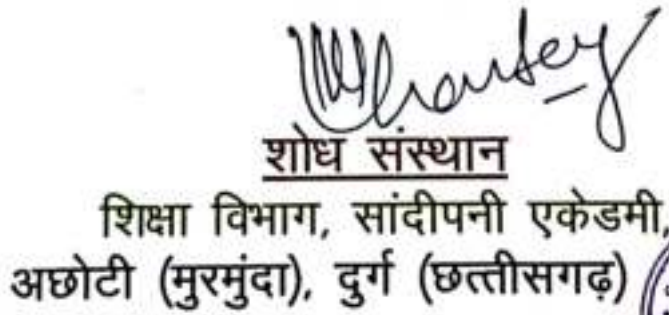 शोध संस्थान
शिक्षा विभाग, सांदीपनी एकेडमी,
अछोटी (मुरमुंदा), दुर्ग (छत्तीसगढ़)